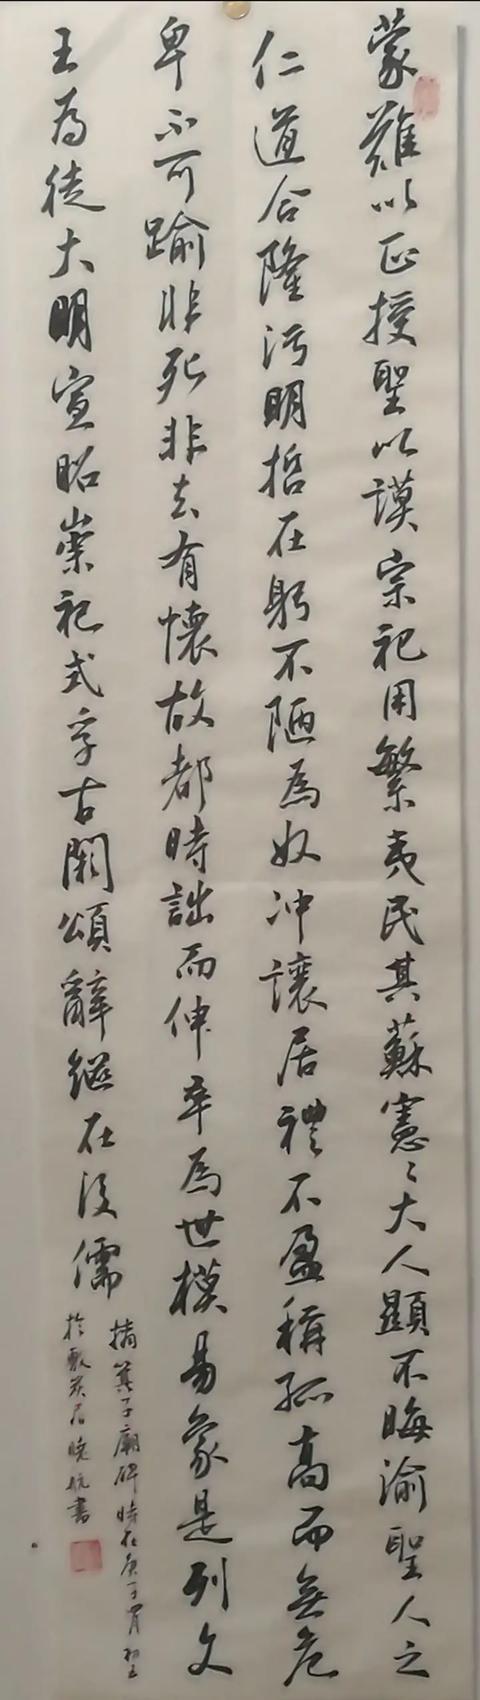 蒙難以正授聖以謨宗祀用繁夷民其蘇憲〻大人顯不晦渝聖人之
仁道合隆污明哲在躬不陋為奴冲讓居禮不盈稱孤高而無危
卑不可踰非死非去有懷故都時詘而伸卒為世模易象是列文
王為徒大明宣昭崇祀式孚古闕頌辭繼在後儒
摘箕子廟碑時在庚子
於 居曉 書